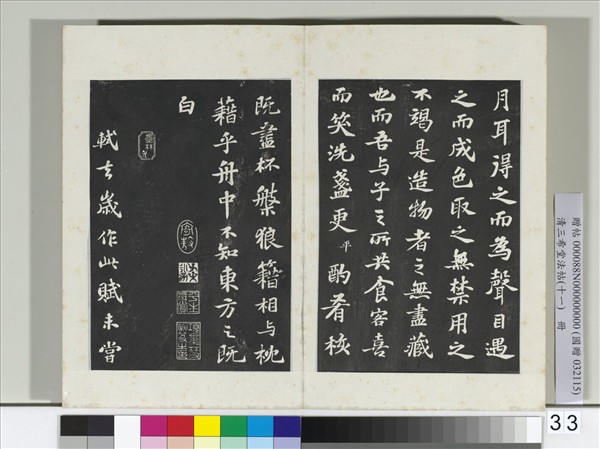 月耳得之而為聲目遇
之而成色取之無禁用之
不竭是造物者之無盡藏
也而吾与子之所共食客喜
而笑洗盞更平酌肴核
既盡杯槃狼籍相与枕
藉乎舟中不知東方之既
白
軾去歲作此賦未嘗
贈帖 000088N000000000 (國贈 032115)
清三希堂法帖(十一) 冊
33